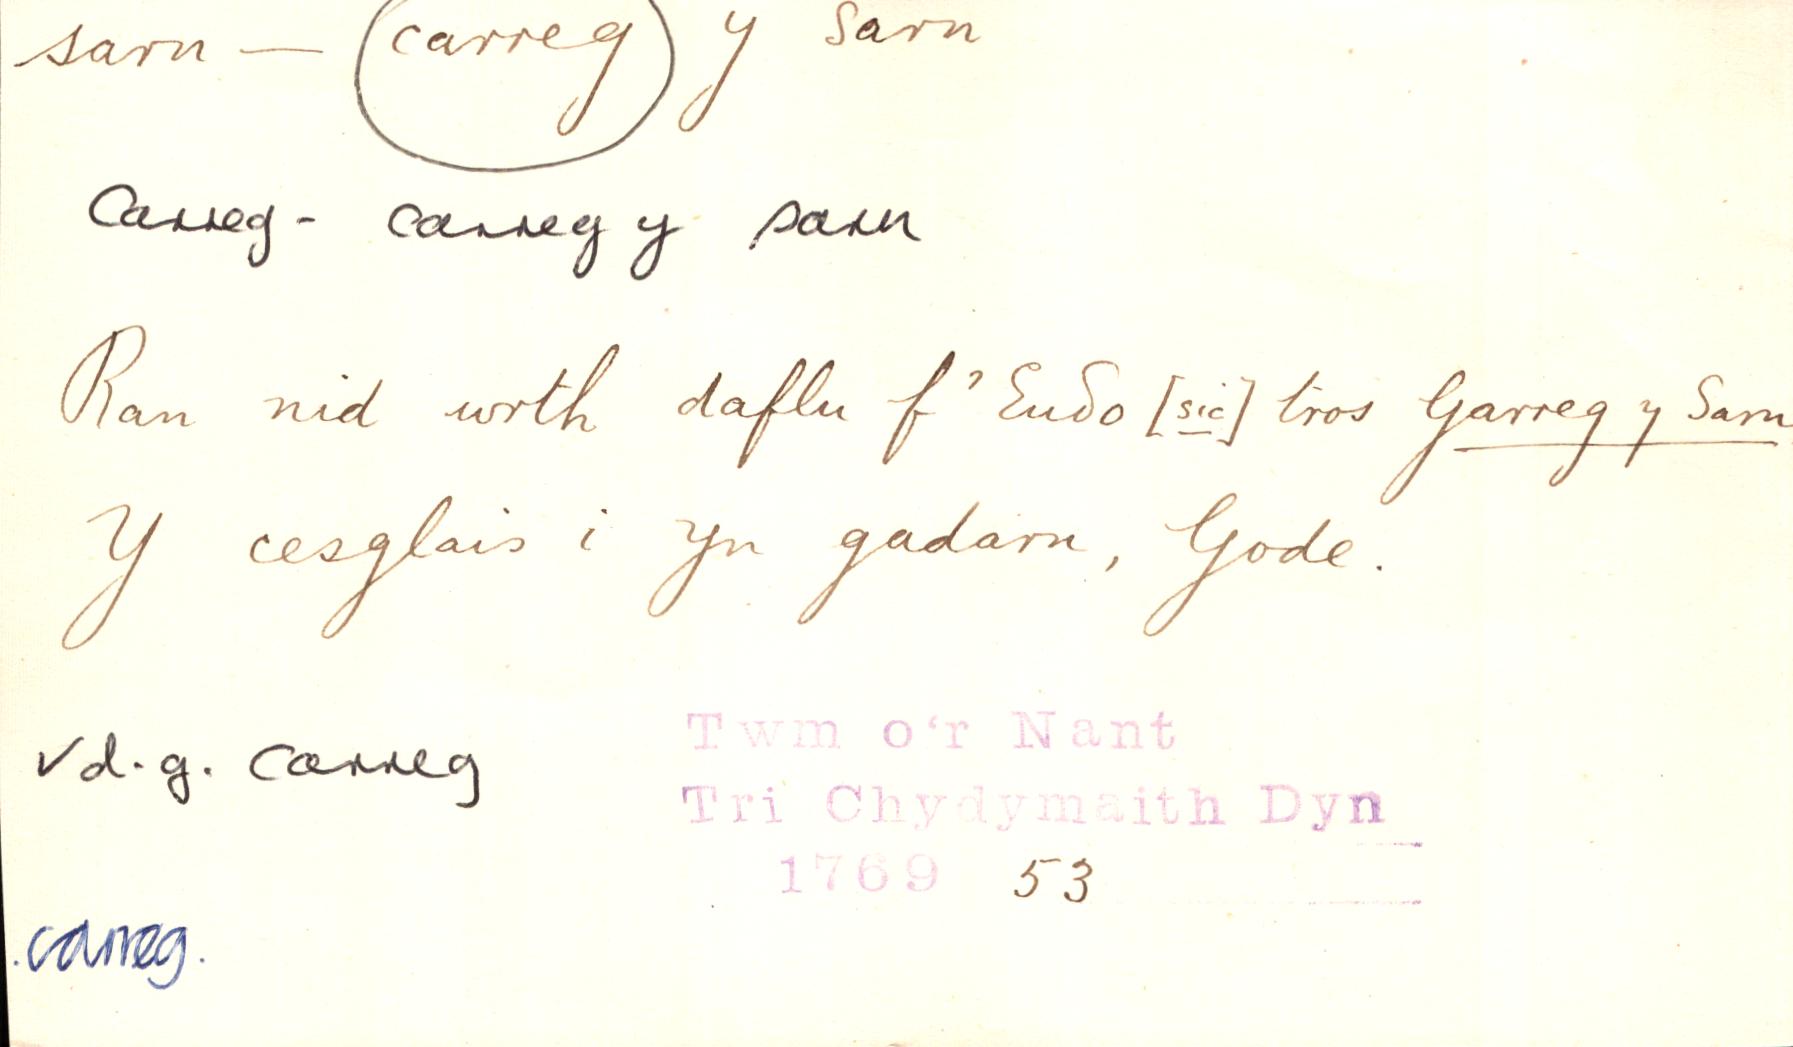 sarn — carreg y Sarn
Carreg - carreg y sarn
Ran nid wrth daflu f' Eudo [sic] tros Garreg y Sarn
Y cesglais i yn gadarn, Gode.
v d.g. carreg
Twm o'r Nant
Tri Chydymaith Dyn
1769 53
.carreg.